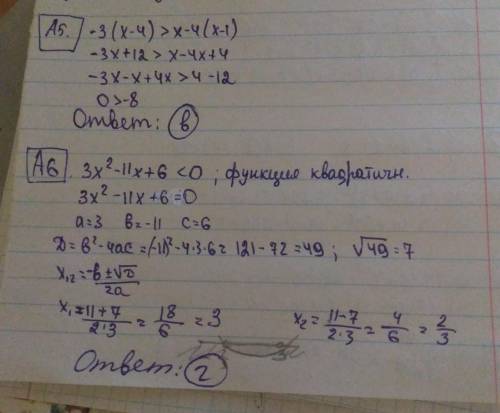 А5. -3(x-4) > x-4(x-1)
-3x+12 > x-4x+4
-3x-x+4x > 4-12
0 > -8
Ответ: в
А6 3x²-11x+6 < 0 ; функция квадратичн.
3x²-11x+6=0
a=3 в=-11 c=6
D=в²-4ac=(-11)²-4·3·6=121-72=49; √49=7
x₁,₂=-в±√D/2a
x₁=11+7/2·3=18/6=3 x₂=11-7/2·3=4/6=2/3
Ответ: г